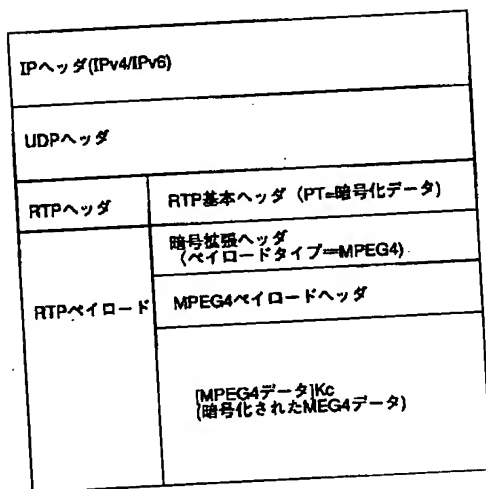 IPヘッダ(IPv4/IPv6)
UDPヘッダ
RTPヘッダ
RTP基本ヘッダ (PT=暗号化データ)
RTPペイロード
暗号拡張ヘッダ
(ペイロードタイプ=MPEG4)
MPEG4ペイロードヘッダ
[MPEG4データ]Kc
(暗号化されたMEG4データ)